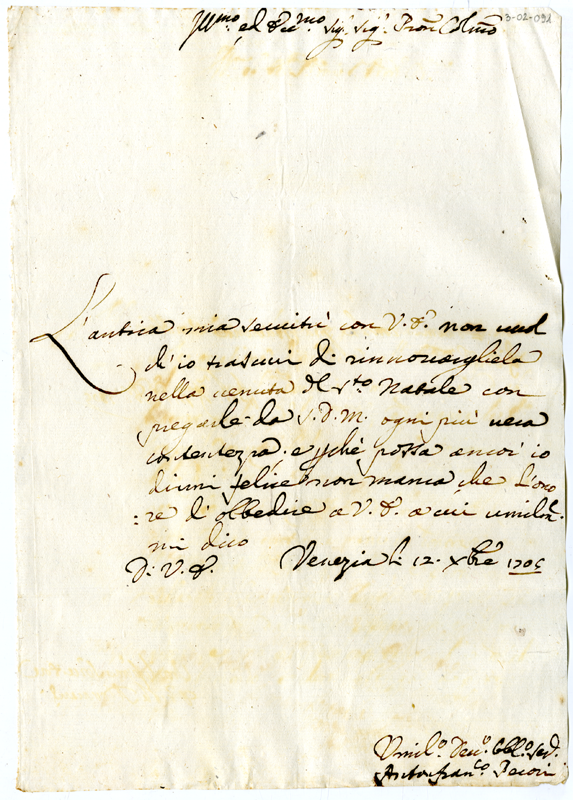 Ill:mo ed Ecc:mo Sig:r Sig:r Pron Colmo
3-02-091
L'antica mia servitù con V.E. non vuol
ch'io trascuri di rinnovargliela
nella venuta del S.to Natale con
pregarle da S.D.M. ogni più vera
contentezza; e perché possa ancor io
dirmi felice non manca che l'ono
:re d'obbedire a V.E. a cui umilm.
mi dico
Di V.E. Venezia li 12. Xbre
Umil.o Dev.o Obb.o Serv.
Antonfran.co Pecori